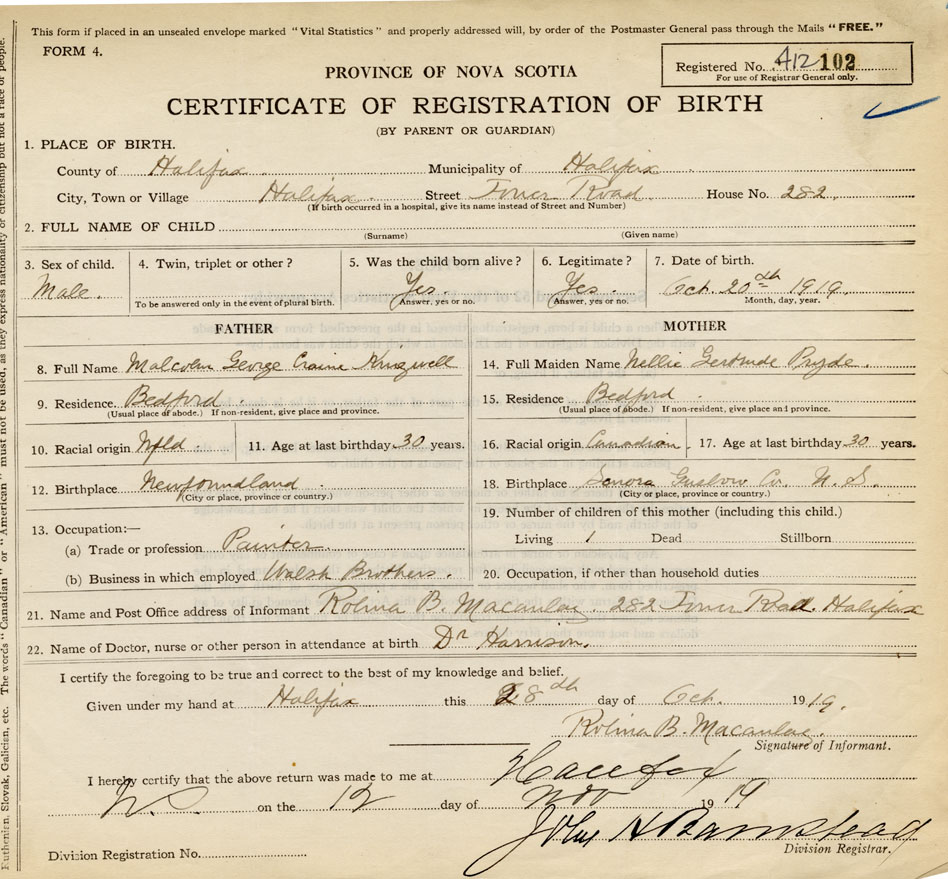 This form if placed in an unsealed envelope marked "Vital Statistics" and properly addressed will, by order of the Postmaster General pass through the Mails "FREE."
FORM 4.
Registered No. A12 102
For use of Registrar General only.
PROVINCE OF NOVA SCOTIA
CERTIFICATE OF REGISTRATION OF BIRTH
(BY PARENT OR GUARDIAN)
1. PLACE OF BIRTH.
County of Halifax Municipality of Halifax
City, Town or Village Halifax Street Tower Road House No. 282
(If birth occurred in a hospital, give its name instead of Street and Number)
2. FULL NAME OF CHILD
(Surname) (Given name)
3. Sex of child. 4. Twin, triplet or other? 5. Was the child born alive? 6. Legitimate? 7. Date of birth.
Male. Yes. Yes. Oct. 20th 1919.
To be answered only in the event of plural birth. Answer, yes or no. Answer, yes or no. Month, day, year.
FATHER MOTHER
8. Full Name Malcolm George 14. Full Maiden Name Nellie Gertrude Pryde
9. Residence Bedford 15. Residence Bedford
(Usual place of abode.) If non-resident, give place and province. (Usual place of abode.) If non-resident, give place and province.
10. Racial origin Nfld 11. Age at last birthday 30 years. 16. Racial origin Canadian 17. Age at last birthday 30 years.
12. Birthplace Newfoundland 18. Birthplace Co. N. S.
(City or place, province or country.) (City or place, province or country.)
13. Occupation:— 19. Number of children of this mother (including this child.)
(a) Trade or profession Painter Living 1 Dead Stillborn
(b) Business in which employed Walsh Brothers. 20. Occupation, if other than household duties
21. Name and Post Office address of Informant B. Macaulay 282 Tower Road. Halifax
22. Name of Doctor, nurse or other person in attendance at birth Dr Harrison.
I certify the foregoing to be true and correct to the best of my knowledge and belief.
Given under my hand at Halifax this 28th day of Oct. 1919.
B. Macaulay
Signature of Informant.
I hereby certify that the above return was made to me at Halifax
NS on the 12 day of Nov 1919
John H Barnstead
Division Registrar.
Division Registration No.
Ruthenian, Slovak, Galician, etc. The words "Canadian" or "American" must not be used, as they express nationality or citizenship but not a race or people.